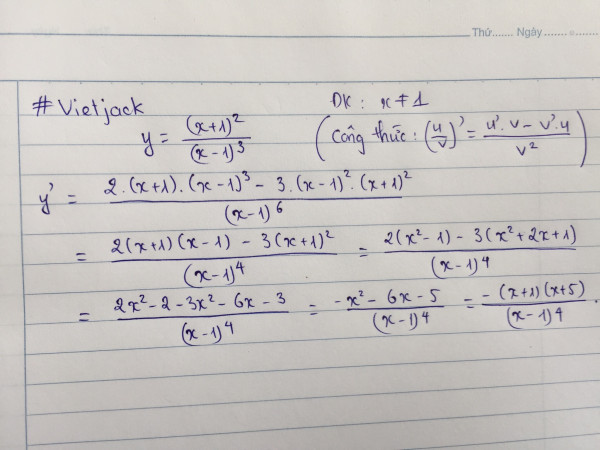 Thứ....... Ngày....... 
#Vietjack ĐK : x ≠ 1
y = (x+1)²/(x-1)³ (Công thức : (u/v)' = (u'.v - v'.u)/v²)
y' = (2.(x+1).(x-1)³ - 3.(x-1)².(x+1)²)/(x-1)⁶
= (2(x+1)(x-1) - 3(x+1)²)/(x-1)⁴ = (2(x²-1) - 3(x²+2x+1))/(x-1)⁴
= (2x²-2-3x²-6x-3)/(x-1)⁴ = (-x²-6x-5)/(x-1)⁴ = (-(x+1)(x+5))/(x-1)⁴.